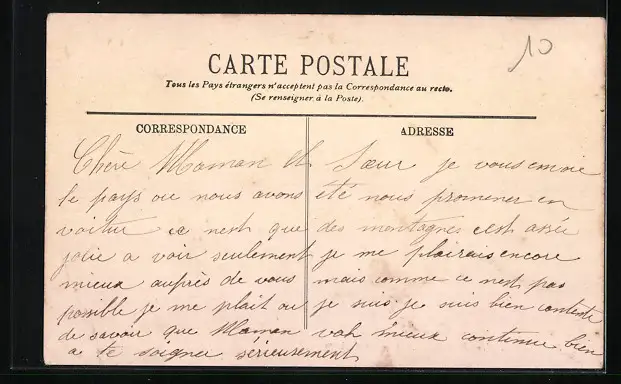 10
CARTE POSTALE
Tous les Pays étrangers n'acceptent pas la Correspondance au recto.
(Se renseigner à la Poste).
CORRESPONDANCE
ADRESSE
Chère Maman et Sœur je vous envoie
le pays ou nous avons été nous promener en
voitur ce nest que des montagnes cest assée
jolie a voir seulement je me plairais encore
mieux auprès de vous mais comme ce nest pas
possible je me plait ou je suis. je suis bien contente
de savoir que Maman vah mieux continue bien
a te soigner sérieusement